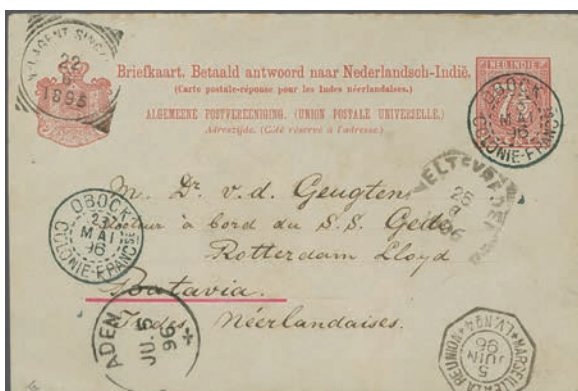 N.I. AGENT SINGAP
22
6
1895
Briefkaart. Betaald antwoord naar Nederlandsch-Indië.
(Carte postale-réponse pour les Indes néerlandaises.)
ALGEMEENE POSTVEREENIGING. (UNION POSTALE UNIVERSELLE.)
Adreszijde. (Côté réservé à l'adresse.)
NED. INDIE
OBOCK
MAI
96
COLONIE-FRANÇSE
M. Dr. v. d. Geugten
docteur à bord du S. S. Gedé
Rotterdam Lloyd
Batavia.
Indes Néerlandaises.
OBOCK
23
MAI
96
COLONIE-FRANÇSE
WELTEVREDEN
26
6
96
ADEN
JU. 5
96
MARSEILLE
L.V. No 4
5
JUIN
96